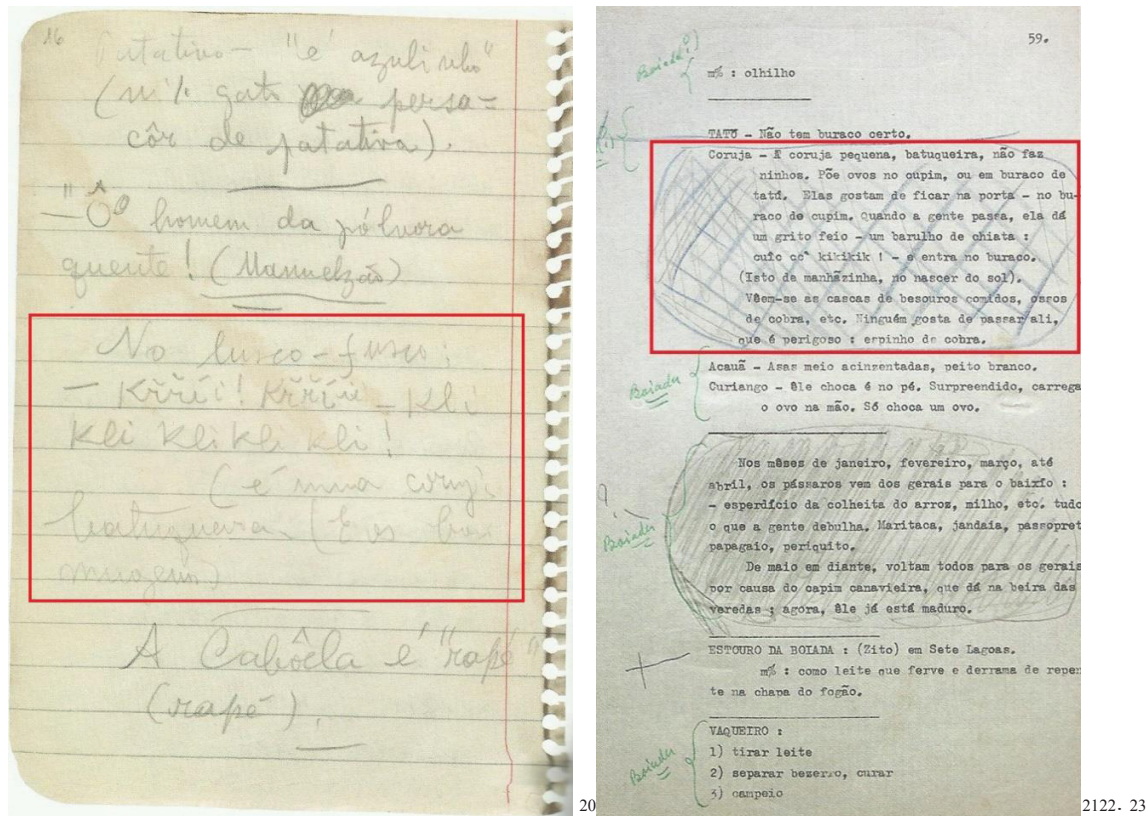 16
Patativo - "é azulinho"
(m% gato persa =
côr de patativa).
- "Ô homem da pólvora
quente! (Manuelzão)
No lusco-fusco:
- Křříí! Křříí - Kli
Kli Kli kli kli!
(é uma coruja
batuqueira.
A Cabôcla é "rapé"
(rapé).
20
59.
Boiada
m% : olhilho
TATÚ - Não tem buraco certo.
Coruja - A coruja pequena, batuqueira, não faz
ninhos. Põe ovos no cupim, ou em buraco de
tatú. Elas gostam de ficar na porta - no bu-
raco do cupim. Quando a gente passa, ela dá
um grito feio - um barulho de chiata :
cuíc cc' kikikik ! - e entra no buraco.
(Isto de manhãzinha, no nascer do sol).
Vêem-se as cascas de besouros comidos, ossos
de cobra, etc. Ninguém gosta de passar ali,
que é perigoso : espinho de cobra.
Acauã - Asas meio acinzentadas, peito branco.
Boiada
Curiango - êle choca é no pé. Surpreendido, carrega
o ovo na mão. Só choca um ovo.
Nos mêses de janeiro, fevereiro, março, até
abril, os pássaros vem dos gerais para o baixío :
- esperdício da colheita do arroz, milho, etc. tudo
o que a gente debulha. Maritaca, jandaia, passopret
Boiada
papagaio, periquito.
De maio em diante, voltam todos para os gerais
por causa do capim canavieira, que dá na beira das
veredas ; agora, êle já está maduro.
ESTOURO DA BOIADA : (Zito) em Sete Lagoas.
m% : como leite que ferve e derrama de repen
te na chapa do fogão.
VAQUEIRO :
1) tirar leite
Boiada
2) separar bezerro, curar
3) campeio
2122. 23